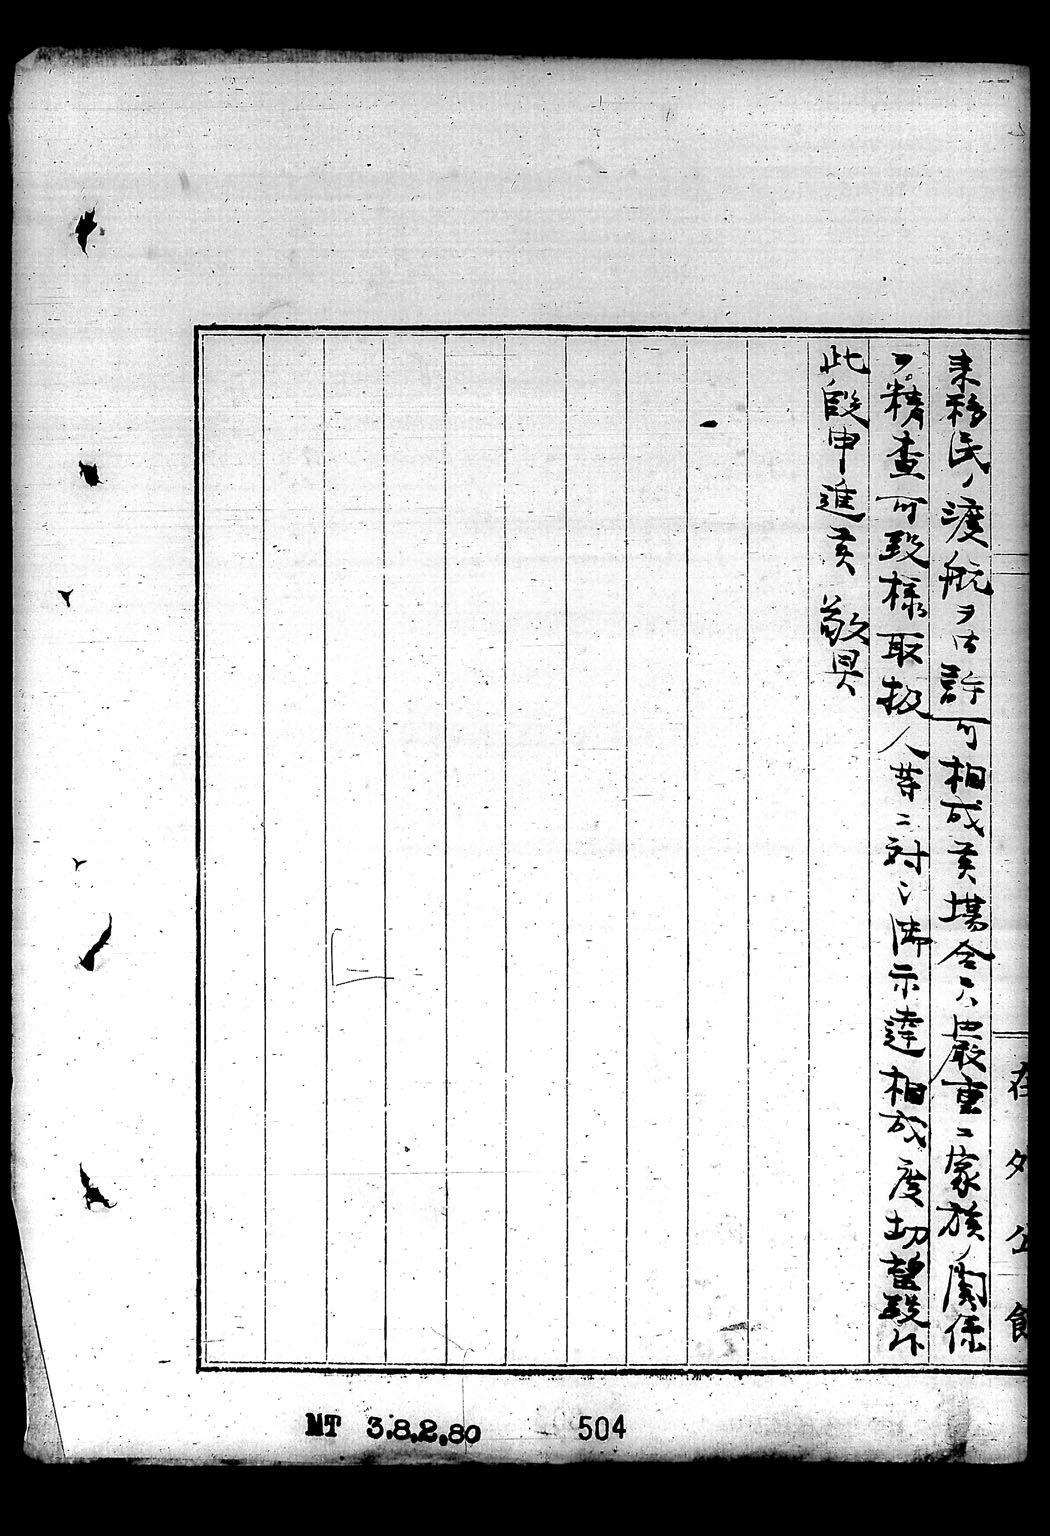 在外公館
来移民ノ渡航ヲ御許可相成候場合ニハ尚厳重ニ家族ノ関係
ヲ精査可致様取扱人等ニ対シ御示達相成度切望致候
此段申進候 敬具
MT 3.8.2.80 504